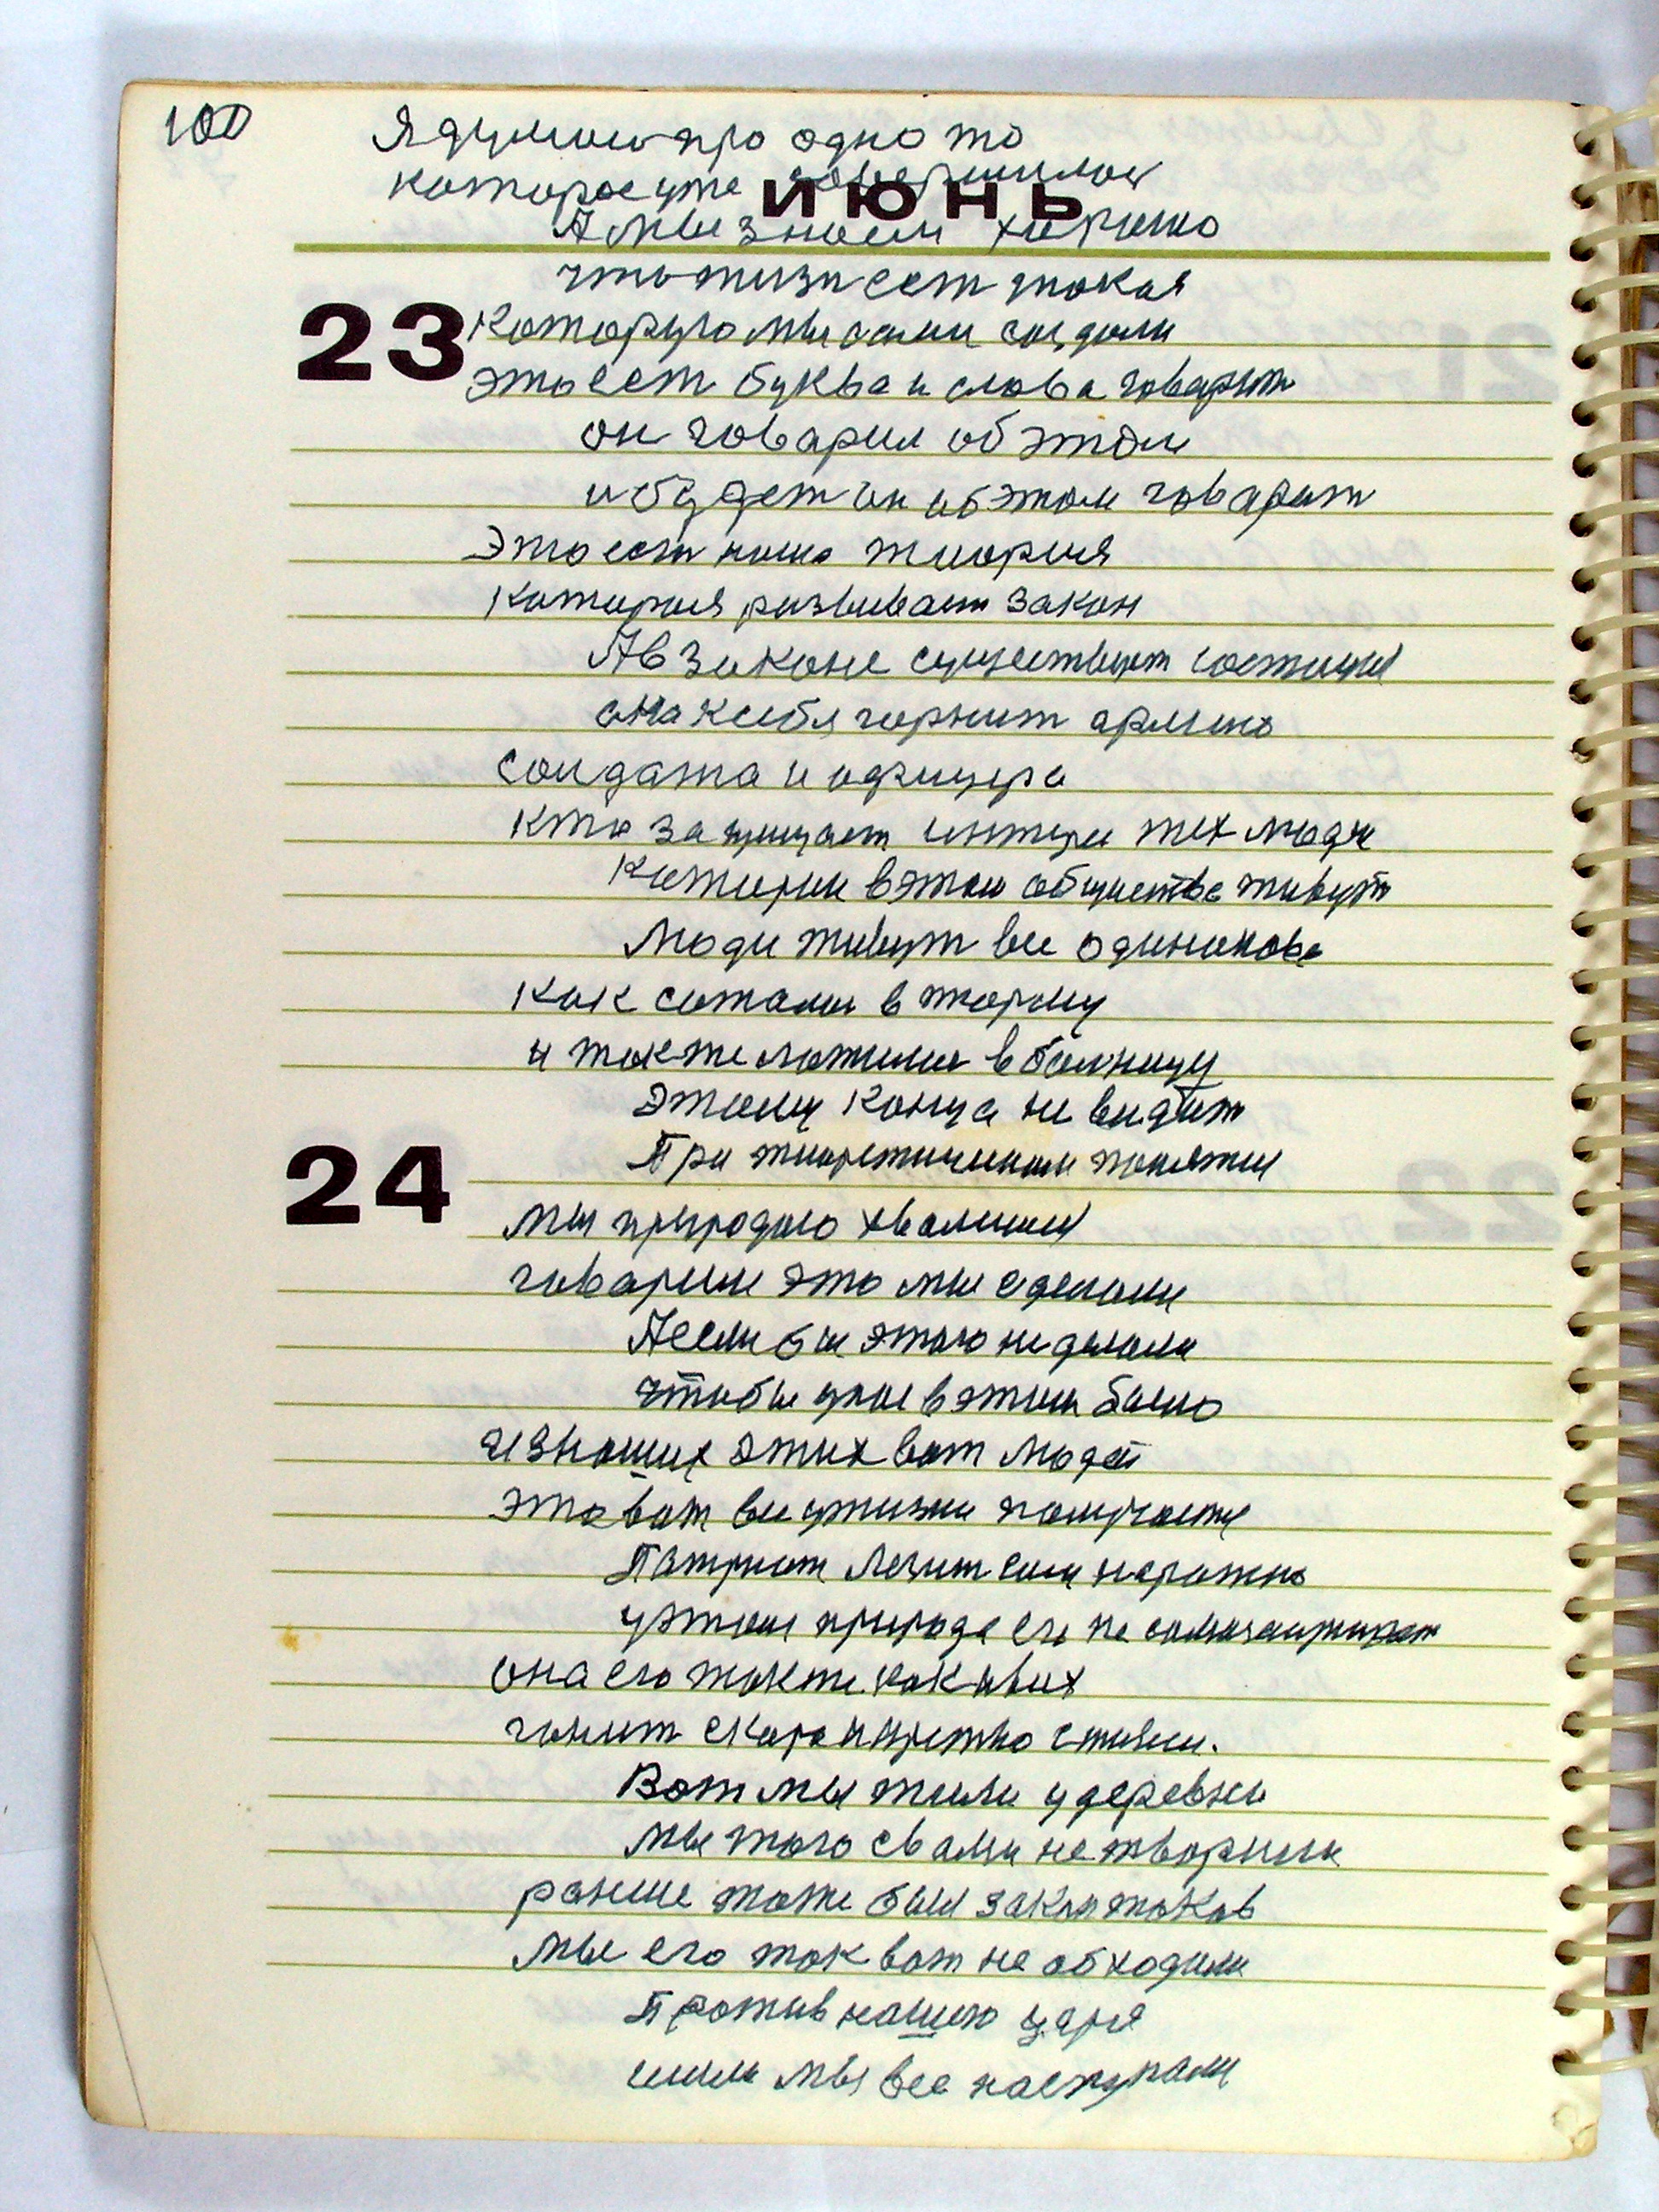 100
Я думаю про одно то
которое уже совершилося
ИЮНЬ
А мы знаем хорошо
что жизн ест токая
23
Которую мы сами создали
это ест буква и слова говарит
он говарил об этом
и будет он об этом говарит
Это ест наша тиория
которая развивает закон
А в законе существует
она к себя горнит армию
солдата и офицера
кто защищает интере тех люде
Которые в этом обществе живут
Люди живут все одинаково
как сажали в тюрму
и также ложили в болницу
этому конца не видит
24
При тиоретическом понятии
мы природою хвалимся
говарим это мы сделали
А если бы этого не делали
чтобы у нас в этом было
из наших этих вот людей
это вот все у жизни получаетя
Патриот лежит сам
у этом природа его не
она его также как и всих
гонит скоро и крепко с жизни.
Вот мы жили у деревни
мы того с вами не творили
ранше тоже был закон токов
мы его ток вот не обходили
Против нашего царя
шли мы все наступали